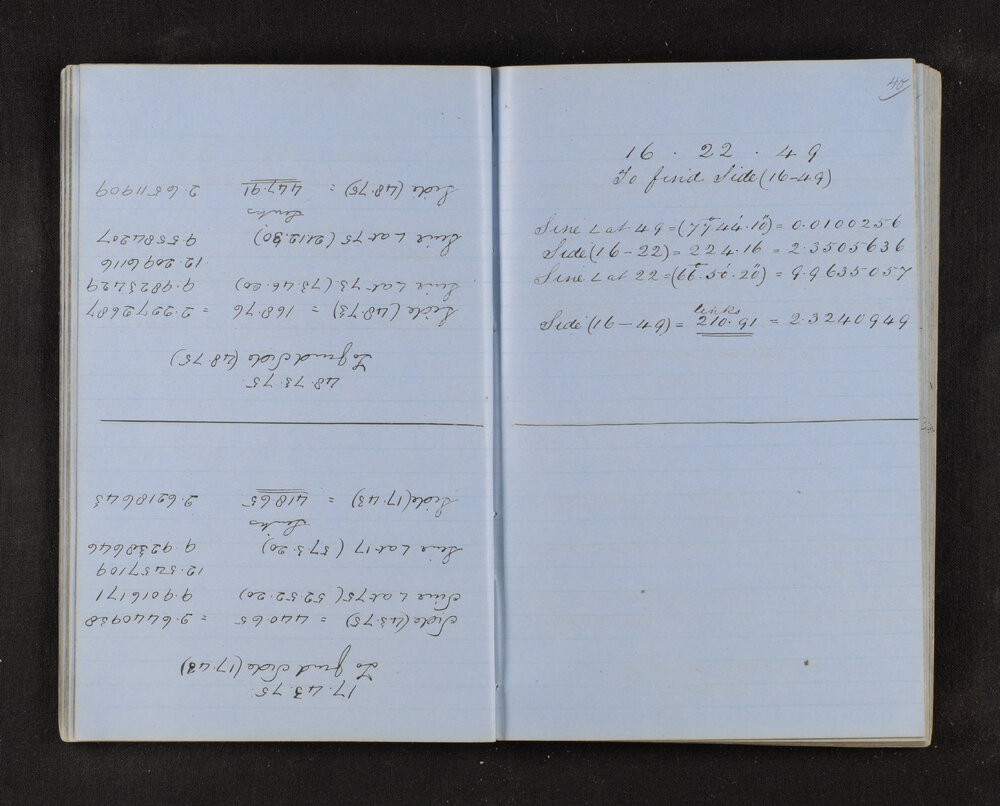 17.43.75
To find Side (17.43)
Side (43.75) = 440.65 = 2.6440938
Sine L at 75 (52.52.20) 9.9016171
12.5457109
Sine L at 17 (57.3.20) 9.9238466
Links
Side (17.43) = 418.65 2.6218643
48.73.75
To find Side (48.75)
Side (48.73) = 168.76 = 2.2272687
Sine L at 73 (73.46.20) 9.9823429
12.2096116
Sine L at 75 (21.12.30) 9.5584207
Links
Side (48.75) = 447.91 2.6511909
40
16 . 22 . 49
To find Side (16-49)
Sine L at 49 = (77°44'.10") = 0.0100256
Side (16-22) = 224.16 = 2.3505636
Sine L at 22 = (66°.50'.20") = 9.9635057
links
Side (16-49) = 210.91 = 2.3240949